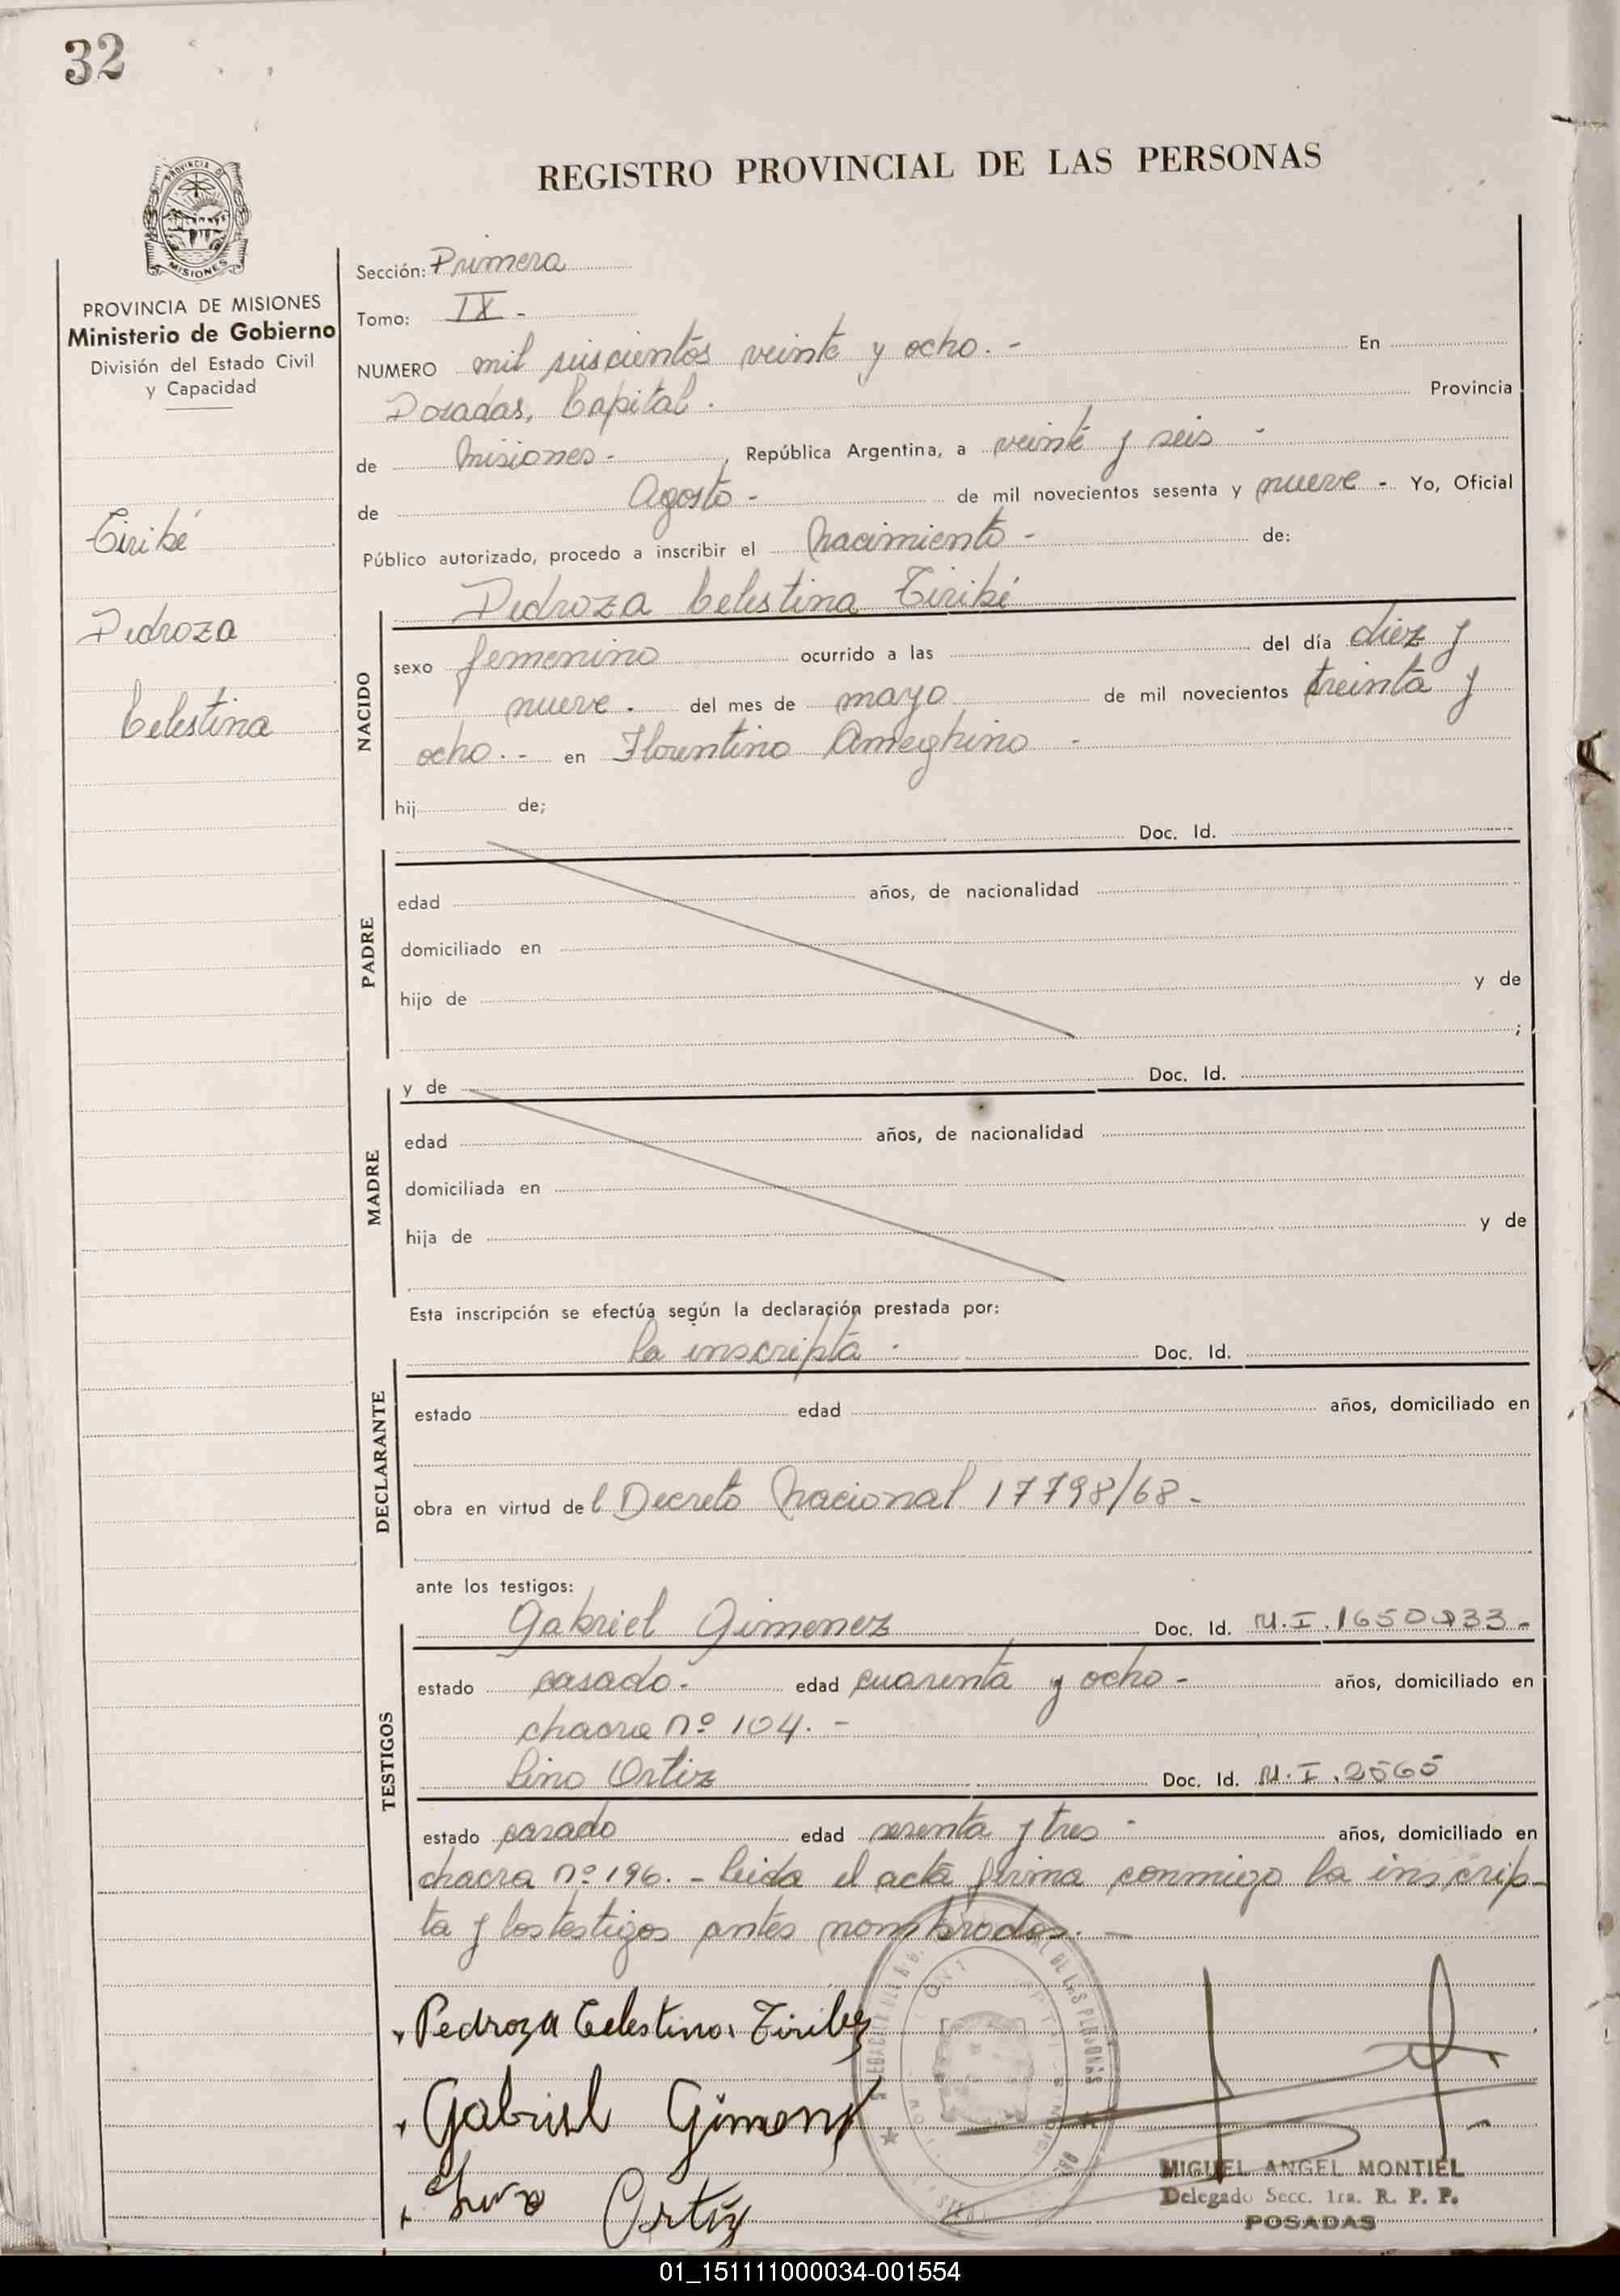 32
REGISTRO PROVINCIAL DE LAS PERSONAS
PROVINCIA DE
MISIONES
PROVINCIA DE MISIONES
Ministerio de Gobierno
División del Estado Civil
y Capacidad
Tiribé
Pedroza
Celestina
Sección: Primera
Tomo: IX -
NUMERO mil seiscientos veinte y ocho. - En
Posadas, Capital. Provincia
de Misiones -, República Argentina, a veinte y seis -
de Agosto - de mil novecientos sesenta y nueve - Yo, Oficial
Público autorizado, procedo a inscribir el nacimiento - de:
Pedroza Celestina Tiribé
NACIDO
sexo femenino ocurrido a las del día diez y
nueve. del mes de mayo de mil novecientos treinta y
ocho. - en Florentino Ameghino -
hij de;
Doc. Id.
PADRE
edad años, de nacionalidad
domiciliado en
hijo de y de
;
y de Doc. Id.
MADRE
edad años, de nacionalidad
domiciliada en
hija de y de
Esta inscripción se efectúa según la declaración prestada por:
la inscripta - Doc. Id.
DECLARANTE
estado edad años, domiciliado en
obra en virtud del Decreto Nacional 17798/68 -
ante los testigos:
Gabriel Gimenez Doc. Id. M.I.
TESTIGOS
estado casado - edad cuarenta y ocho - años, domiciliado en
chacra nº 104. -
Lino Ortiz Doc. Id. M.I. 2565
estado casado edad y tres - años, domiciliado en
chacra nº 196. - Leida el acta firma conmigo la inscrip-
ta y los testigos antes nombrados. -
Pedroza Celestina Tiribe
Gabriel Gimenz
Lino Ortiz
DE LAS PERSONAS
MIGUEL ANGEL MONTIEL
Delegado Secc. 1ra. R. P. P.
POSADAS
01_151111000034-001554